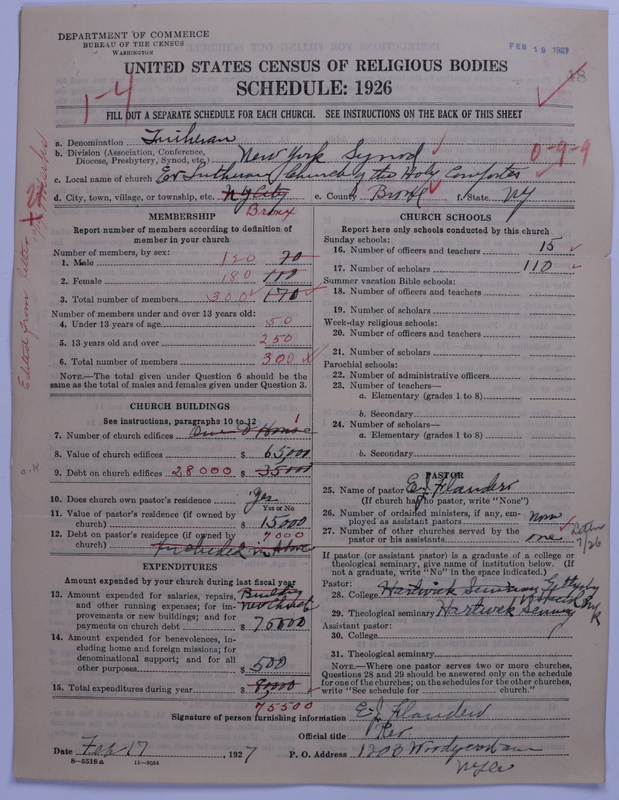 DEPARTMENT OF COMMERCE
BUREAU OF THE CENSUS
WASHINGTON
FEB 18 1927
UNITED STATES CENSUS OF RELIGIOUS BODIES
SCHEDULE: 1926
48
1-4
FILL OUT A SEPARATE SCHEDULE FOR EACH CHURCH. SEE INSTRUCTIONS ON THE BACK OF THIS SHEET
a. Denomination Lutheran
b. Division (Association, Conference, Diocese, Presbytery, Synod, etc.) New York Synod
0-9-9
c. Local name of church Ev Lutheran Church of the Holy Comforter
d. City, town, village, or township, etc. N Y City Bronx e. County Bronx f. State NY
MEMBERSHIP
Report number of members according to definition of member in your church
Number of members, by sex:
1. Male 120 70
2. Female 180 110
3. Total number of members 300 170
Number of members under and over 13 years old:
4. Under 13 years of age 50
5. 13 years old and over 250
6. Total number of members 300
NOTE.—The total given under Question 6 should be the same as the total of males and females given under Question 3.
CHURCH BUILDINGS
See instructions, paragraphs 10 to 12
7. Number of church edifices One & House 1
8. Value of church edifices $ 65,000
9. Debt on church edifices 28000 $ 35000
10. Does church own pastor's residence Yes
Yes or No
11. Value of pastor's residence (if owned by church) $ 15000
12. Debt on pastor's residence (if owned by church) $ 7000 Included in Above
EXPENDITURES
Amount expended by your church during last fiscal year
13. Amount expended for salaries, repairs, and other running expenses; for improvements or new buildings; and for payments on church debt Building New Church $ 75000
14. Amount expended for benevolences, including home and foreign missions; for denominational support; and for all other purposes $ 500
15. Total expenditures during year $ 8,000
75500
CHURCH SCHOOLS
Report here only schools conducted by this church
Sunday schools:
16. Number of officers and teachers 15
17. Number of scholars 110
Summer vacation Bible schools:
18. Number of officers and teachers
19. Number of scholars
Week-day religious schools:
20. Number of officers and teachers
21. Number of scholars
Parochial schools:
22. Number of administrative officers
23. Number of teachers—
a. Elementary (grades 1 to 8)
b. Secondary
24. Number of scholars—
a. Elementary (grades 1 to 8)
b. Secondary
PASTOR
25. Name of pastor E J Flanders
(If church has no pastor, write "None")
26. Number of ordained ministers, if any, employed as assistant pastors none
27. Number of other churches served by the pastor or his assistants one
7/26
If pastor (or assistant pastor) is a graduate of a college or theological seminary, give name of institution below. (If not a graduate, write "No" in the space indicated.)
Pastor:
28. College Hartwick Seminary
29. Theological seminary Hartwick Seminary
Assistant pastor:
30. College
31. Theological seminary
NOTE.—Where one pastor serves two or more churches, Questions 28 and 29 should be answered only on the schedule for one of the churches; on the schedules for the other churches, write "See schedule for church."
Signature of person furnishing information E J Flanders
Official title Rev
Date Feb 17, 1927 P. O. Address 1208 Woodycrest ave
NYC
8—5518 a 11—9064
Edited from letter